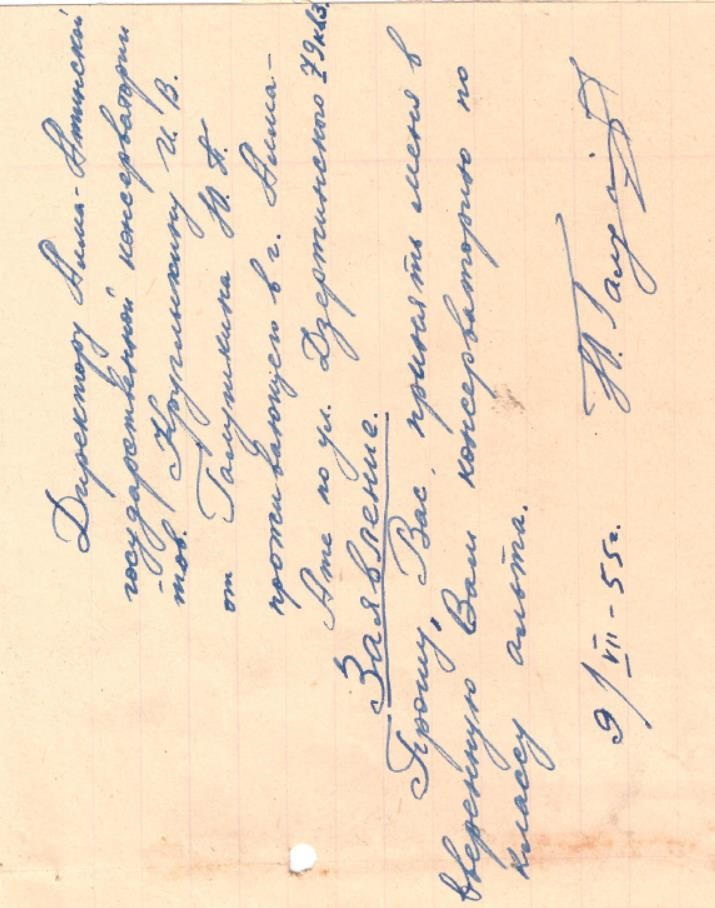 Директору Алма-Атинской
государственной консерватории
тов. Круглыхину И. В.
от Галушкина Ю. П.
проживающего в г. Алма-
Ате по ул. Дзержинского 79 кв 3.
Заявление.
Прошу, Вас, принять меня в
вверенную Вам консерваторию по
классу альта.
9/VII-55г. Ю. Галу